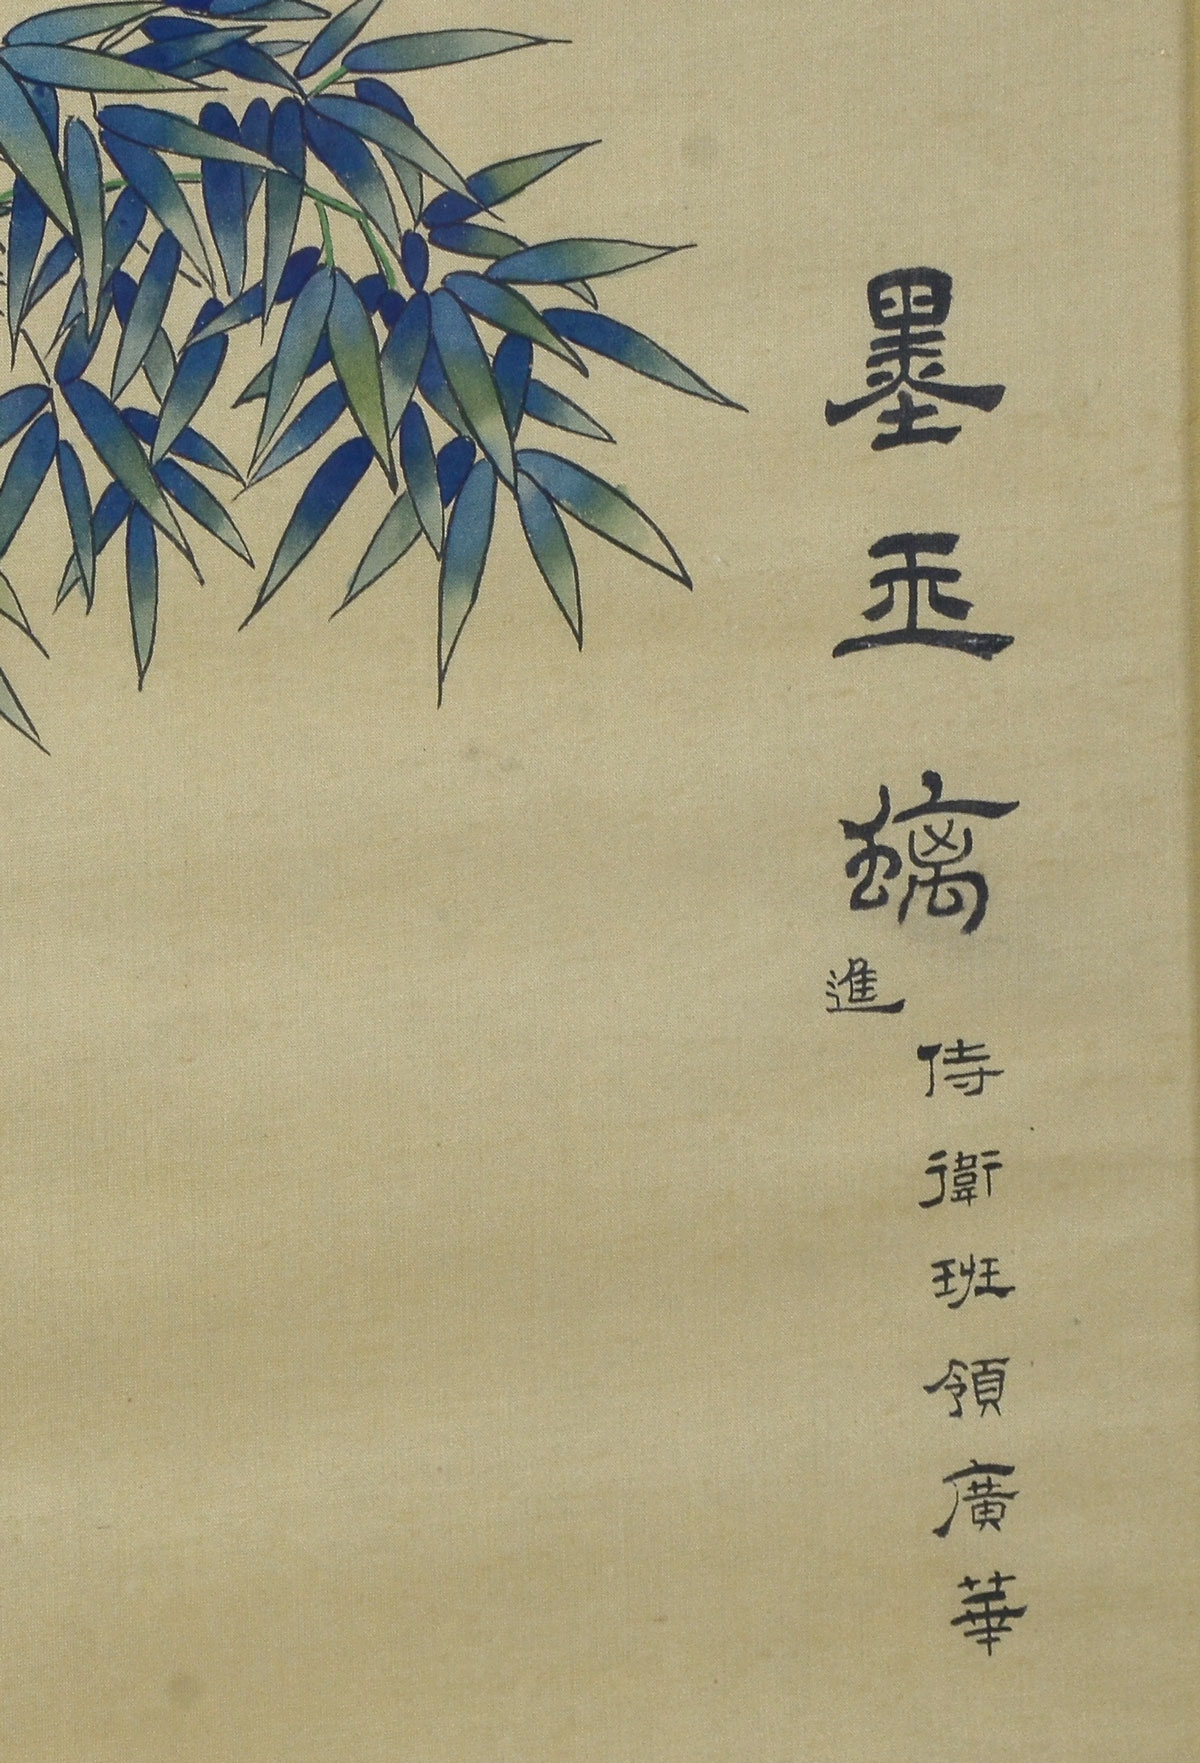 墨玉螭
侍衛班領廣華
進